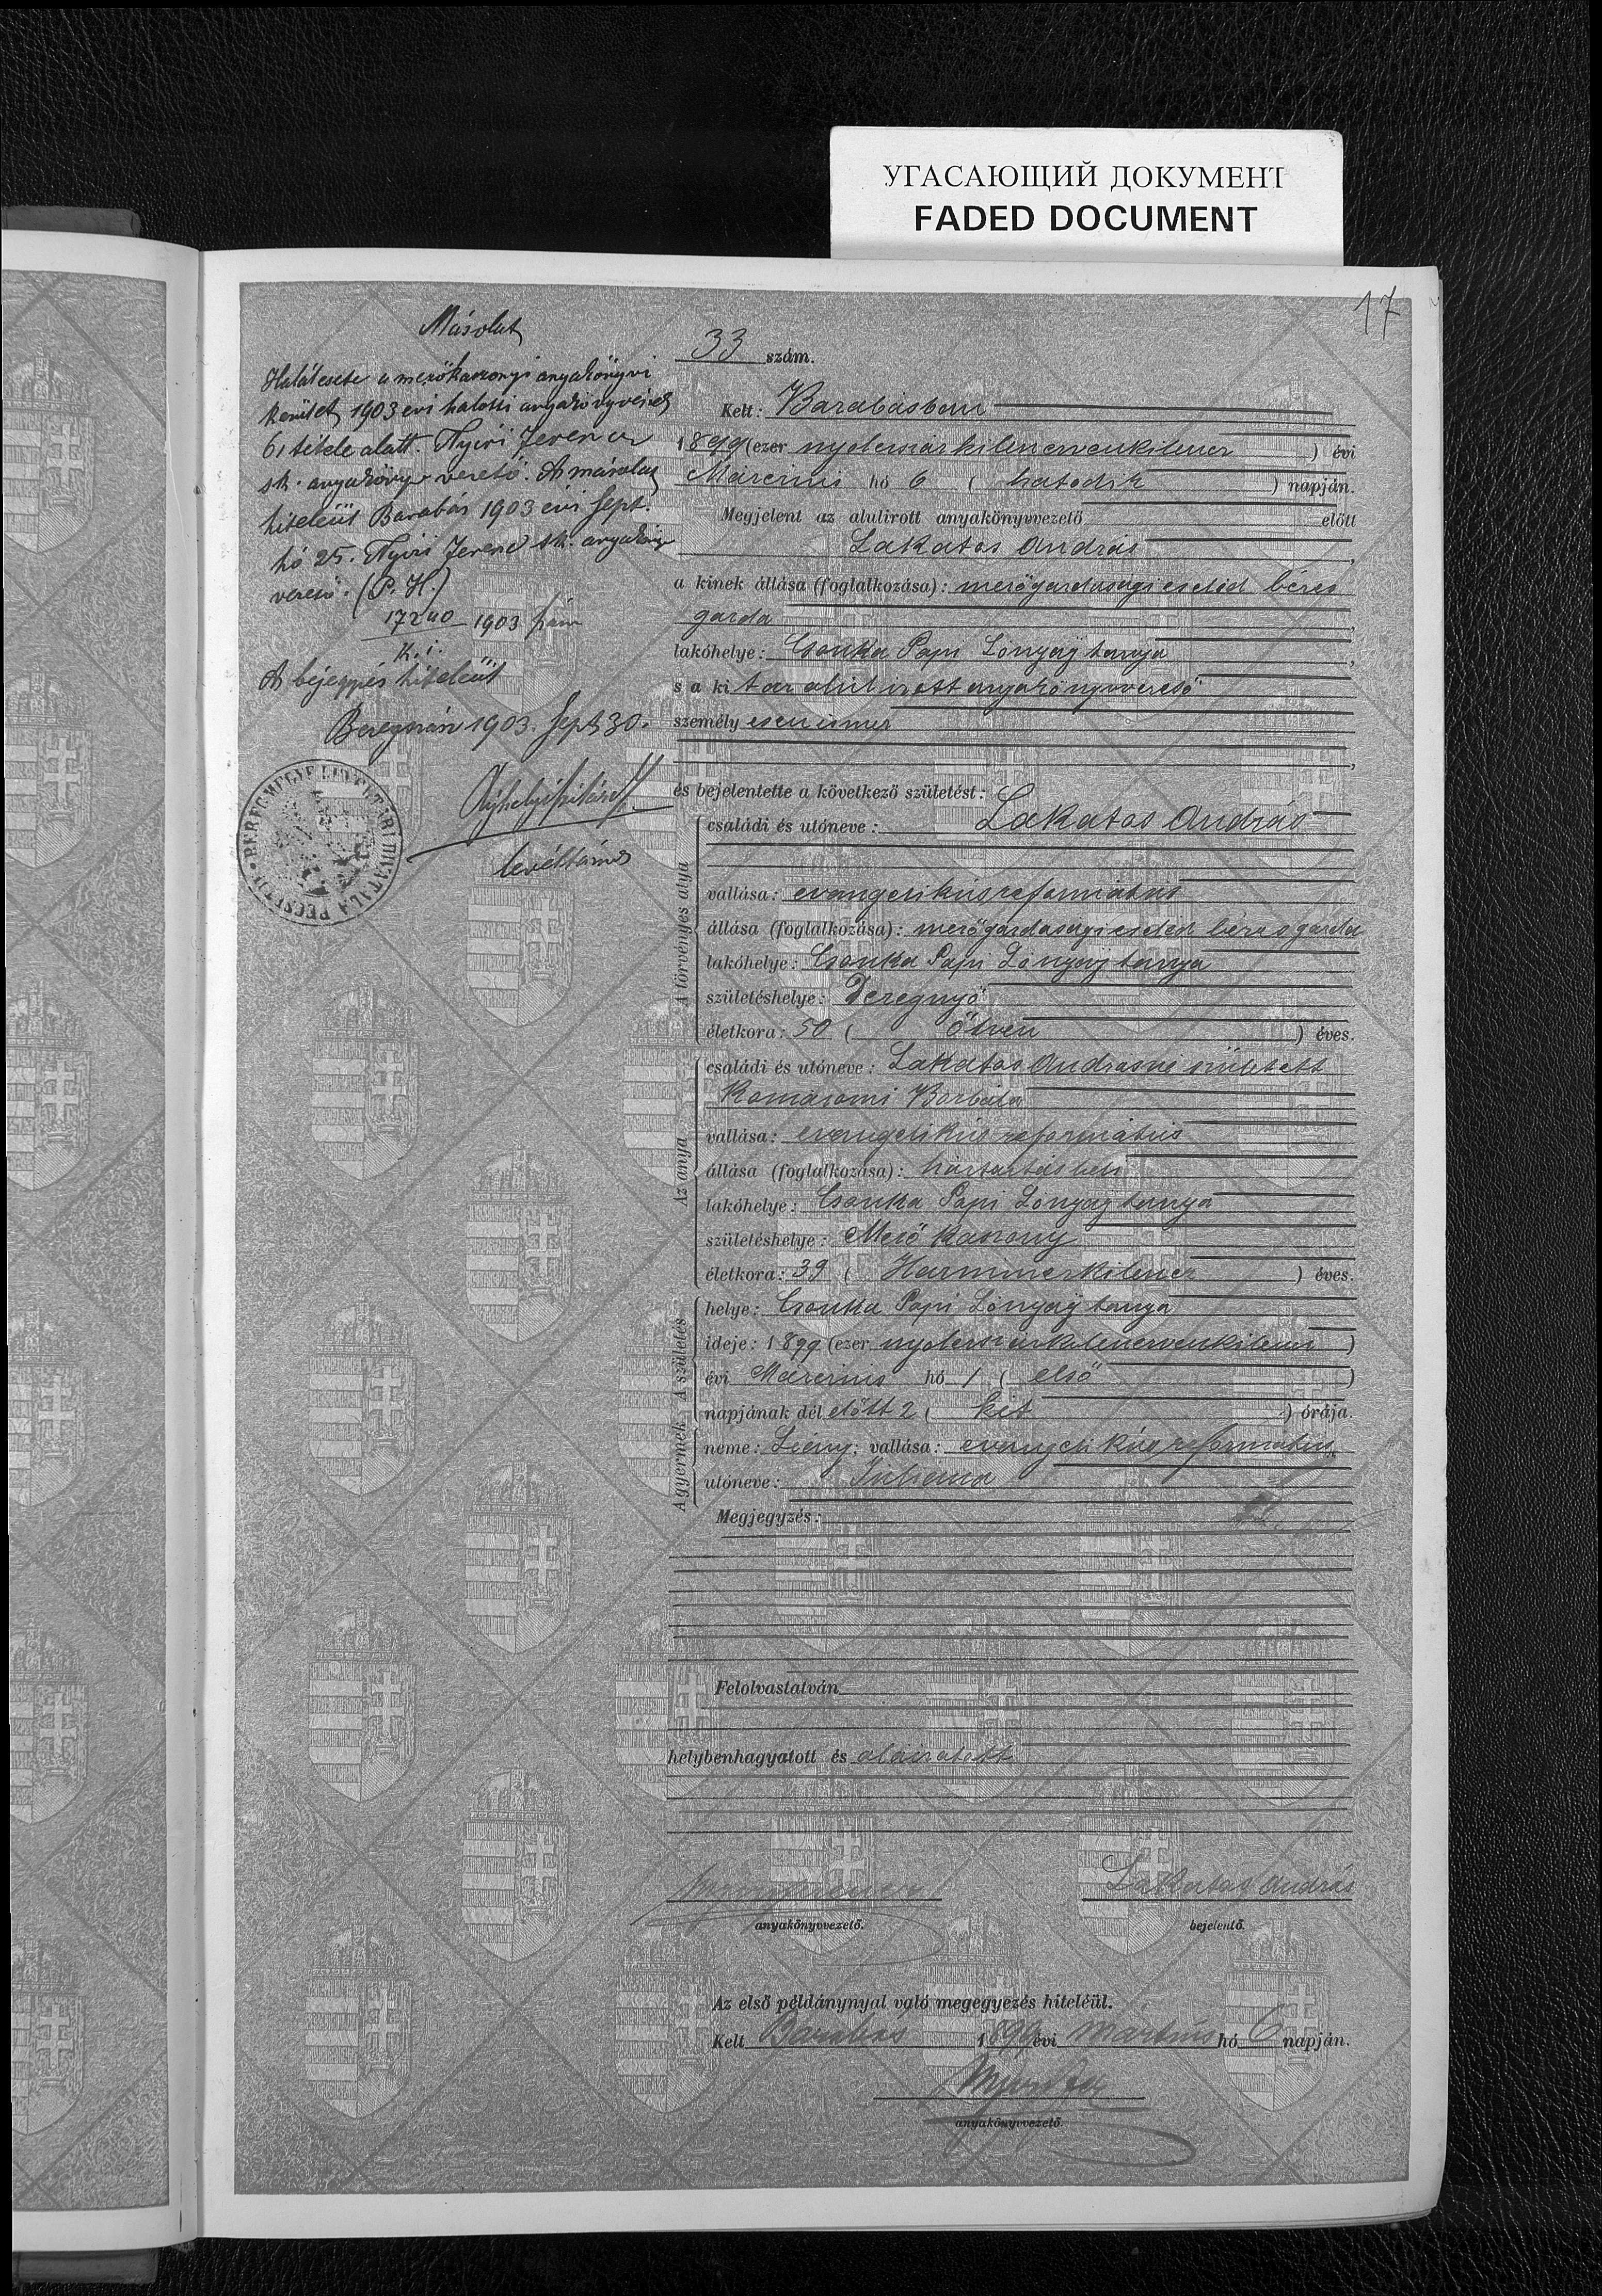 УГАСАЮЩИЙ ДОКУМЕНТ
FADED DOCUMENT
17
Másolat
Halálesete a mezőkaszonyi anyakönyvi
kerület 1903 évi halotti anyakönyvének
61 tétele alatt. Nyiri Ferencz
sk. anyakönyvvezető. A másolat
hiteléül Barabás 1903 évi Sept.
hó 25. Nyiri Ferencz sk. anyakönyv
vezető. (P. H.)
17240 1903 szám
K. i.
A bejegyzés hiteléül
Beregszász 1903. Sept 30.
levéltárnok
BEREGMEGYE LEVÉLTÁRI HIVATALA PECSÉTJE
33 szám.
Kelt: Barabásban
1899 (ezer nyolczszázkilenczvenkilencz ) évi
Márczius hó 6 ( hatodik ) napján.
Megjelent az alulirott anyakönyvvezető előtt
Lakatos András
a kinek állása (foglalkozása): mezőgazdasági cseléd béres
gazda
lakóhelye: Csonka Papi Lónyay tanya,
s a kit az alúlirott anyakönyvvezető
személyesen ismer
és bejelentette a következő születést:
A törvényes atya
családi és utóneve: Lakatos András
vallása: evangelikús református
állása (foglalkozása): mezőgazdasági cseléd béres gazda
lakóhelye: Csonka Papi Lónyay tanya
születéshelye: Deregnyő
életkora: 50 ( ötven ) éves.
Az anya
családi és utóneve: Lakatos Andrásné született
Komáromi Borbála
vallása: evangelikús református
állása (foglalkozása): háztartásbeli
lakóhelye: Csonka Papi Lónyay tanya
születéshelye: Mező Kaszony
életkora: 39 ( Harminczkilencz ) éves.
A születés
helye: Csonka Papi Lónyay tanya
ideje: 1899 (ezer nyolczszázkilenczvenkilencz )
évi Márczius hó 1 ( első )
napjának dél előtt 2 ( két ) órája.
A gyermek
neme: Leány; vallása: evangelikús református
utóneve: Juliánna
Megjegyzés:
Felolvastatván
helybenhagyatott és aláiratott
Lakatos András
anyakönyvvezető. bejelentő.
Az első példánynyal való megegyezés hiteléül.
Kelt Barabás 1899 évi Martius hó 6 napján.
anyakönyvvezető.